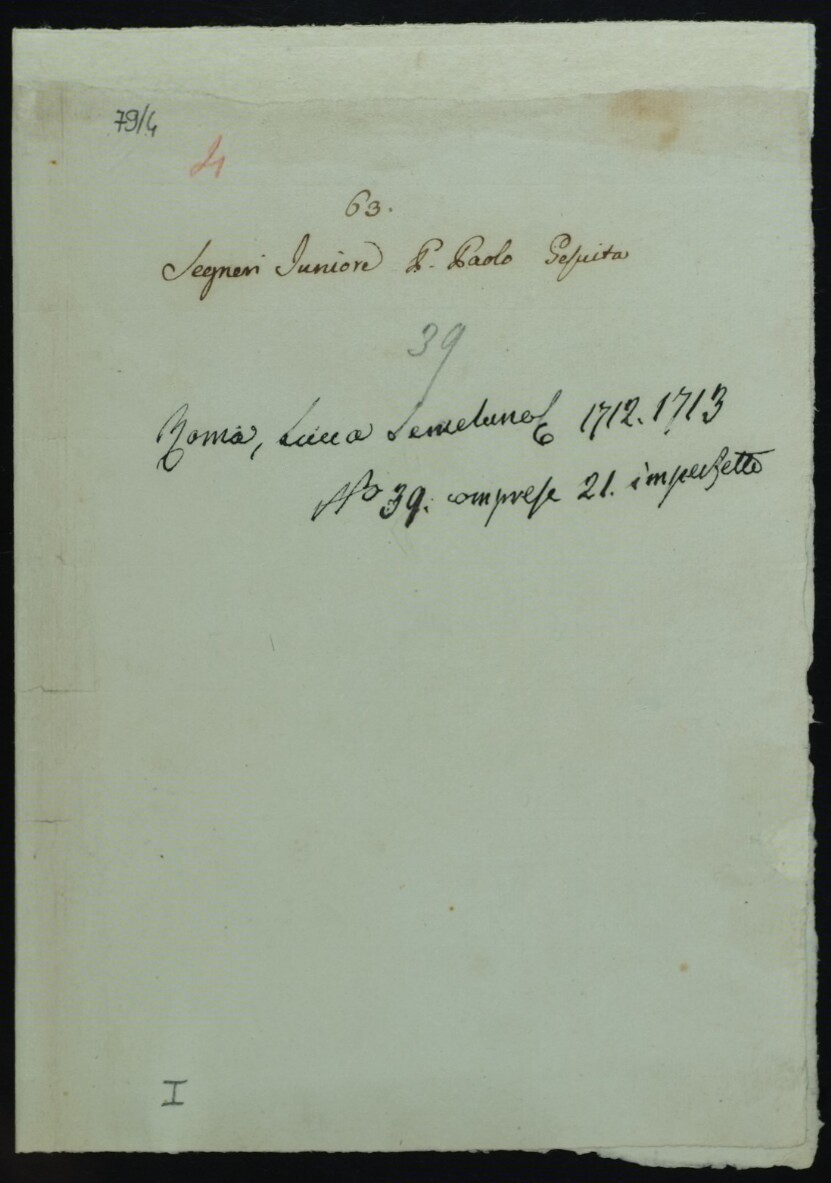 79/4
4
63.
Segneri Juniore P. Paolo Gesuita
39
Roma, Lucca 1712. 1713
No 39. comprese 21. imperfette
I